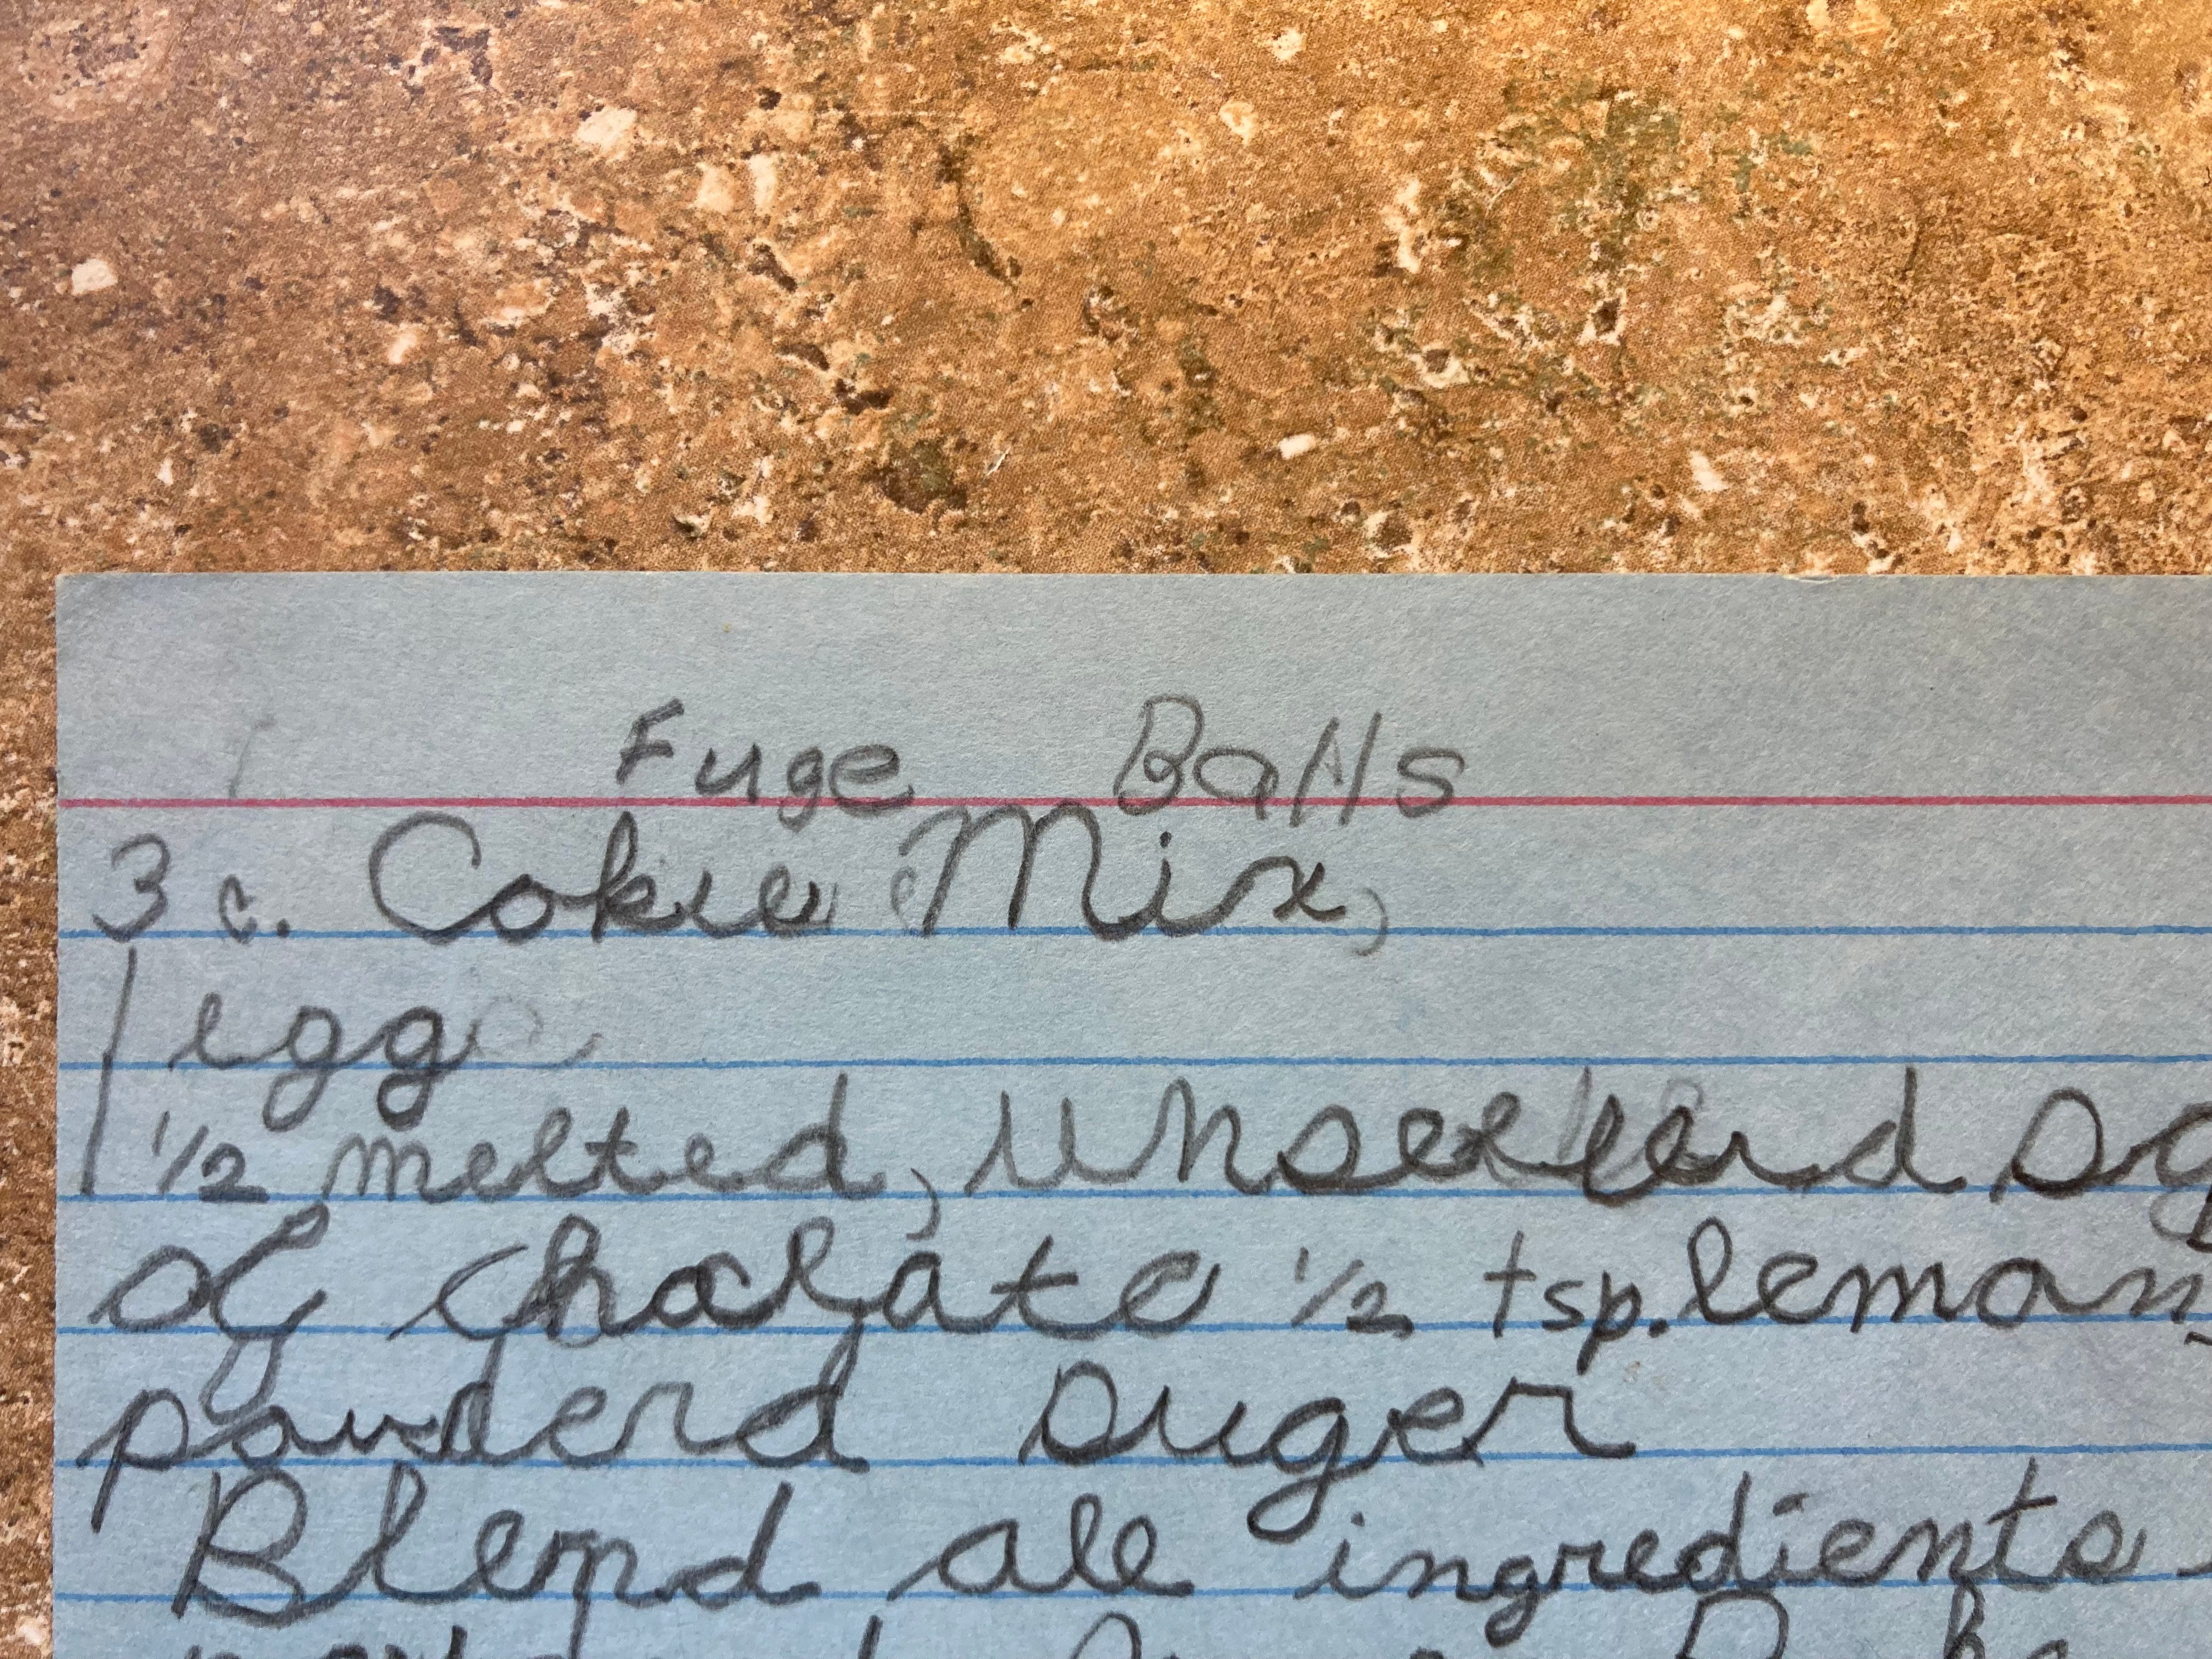 Fuge Balls
3 c. Cokie Mix,
1 egg
1 1/2 melted, unseeterd
of choclate 1/2 tsp. lemon
powderd suger
Blend all ingredients